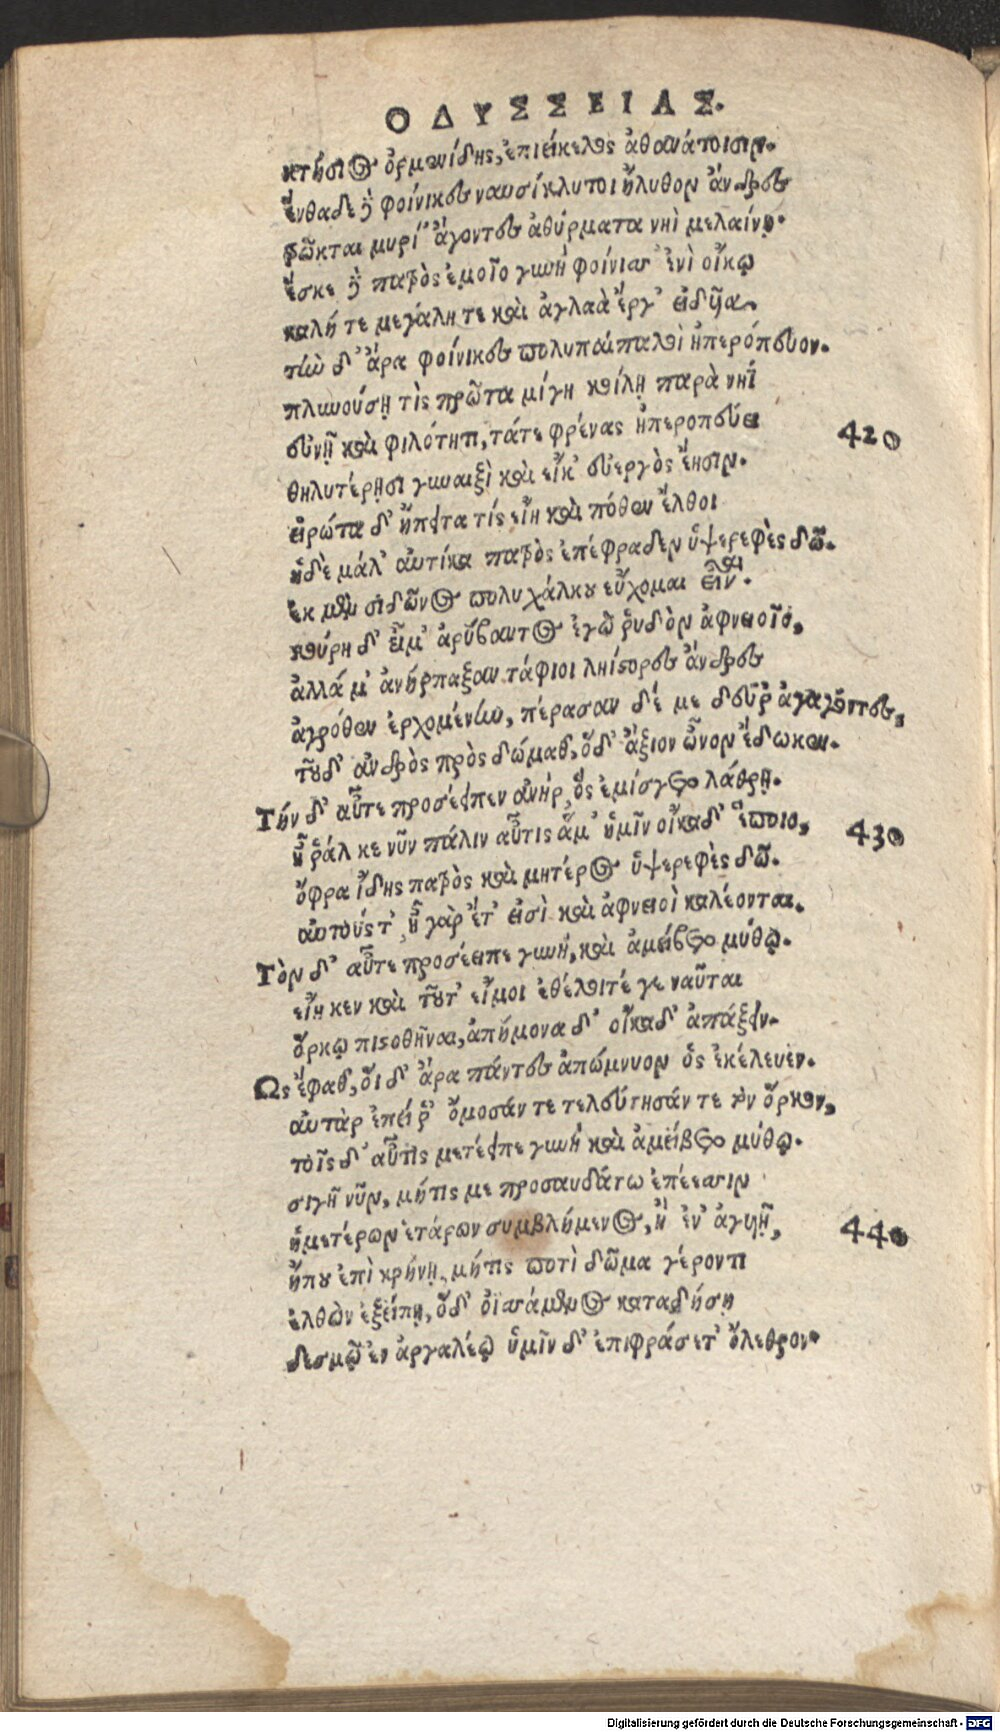 ΟΔΥΣΣΕΙΑΣ.
κτήσιος ὀρμενίδης, ἐπιείκελος ἀθανάτοισιν.
ἔνθα δὲ φοίνικες ναυσίκλυτοι ἤλυθον ἄνδρες
τρῶκται μυρί' ἄγοντες ἀθύρματα νηὶ μελαίνῃ.
ἔσκε δὲ πατρὸς ἐμοῖο γυνὴ φοίνισσ' ἐνὶ οἴκῳ
καλή τε μεγάλη τε καὶ ἀγλαὰ ἔργ' εἰδυῖα.
τὴν δ' ἄρα φοίνικες πολυπαίπαλοι ἠπερόπευον.
πλυνούσῃ τὶς πρῶτα μίγη κοίλῃ παρὰ νηῒ
εὐνῇ καὶ φιλότητι, τάτε φρένας ἠπεροπεύει
420
θηλυτέρῃσι γυναιξὶ καὶ εἴκ' εὐεργὸς ἔησιν.
εἰρώτα δ' ἤπειτα τίς εἴη καὶ πόθεν ἔλθοι
ἡ δὲ μάλ' αὐτίκα πατρὸς ἐπέφραδεν ὑψερεφὲς δῶ.
ἐκ μὲν σιδῶνος πολυχάλκου εὔχομαι εἶναι.
κούρη δ' εἴμ' ἀρύβαντος ἐγὼ ῥυδὸν ἀφνειοῖο,
ἀλλά μ' ἀνήρπαξαν τάφιοι ληίστορες ἄνδρες
ἀγρόθεν ἐρχομένην, πέρασαν δέ με δεῦρ' ἀγαγόντες,
τοῦδ' ἀνδρὸς πρὸς δώμαθ', ὅδ' ἄξιον ὦνον ἔδωκεν.
Τήν δ' αὖτε προσέειπεν ἀνήρ, ὃς ἐμίσγετο λάθρῃ.
ἦ ῥάκε νῦν πάλιν αὖτις ἅμ' ἡμῖν οἴκαδ' ἕποιο,
430
ὄφρα ἴδης πατρὸς καὶ μητέρος ὑψερεφὲς δῶ.
αὐτούς τ', ἦ γὰρ ἔτ' εἰσὶ καὶ ἀφνειοὶ καλέονται.
Τὸν δ' αὖτε προσέειπε γυνή, καὶ ἀμείβετο μύθῳ.
εἴη κεν καὶ τοῦτ' εἴμοι ἐθέλοιτέ γε ναῦται
ὅρκῳ πιστωθῆναι, ἀπήμονα δ' οἴκαδ' ἀπάξειν.
Ὣς ἔφαθ', οἱ δ' ἄρα πάντες ἀπώμνυον ὃς ἐκέλευεν.
αὐτὰρ ἐπεί ῥ' ὄμοσάν τε τελεύτησάν τε τὸν ὅρκον,
τοῖς δ' αὖτις μετέειπε γυνὴ καὶ ἀμείβετο μύθῳ.
σιγῇ νῦν, μήτις με προσαυδάτω ἐπέεσσιν
ἡμετέρων ἑτάρων συμβλήμενος, ἢ ἐν' ἀγυιῇ,
440
ἤπου ἐπὶ κρήνῃ, μήτις ποτὶ δῶμα γέροντι
ἐλθὼν ἐξείπῃ, ὅδ' ὀϊσσάμενος καταδήσῃ
δεσμῷ ἐν ἀργαλέῳ ὑμῖν δ' ἐπιφράσετ' ὄλεθρον.
Digitalisierung gefördert durch die Deutsche Forschungsgemeinschaft - DFG